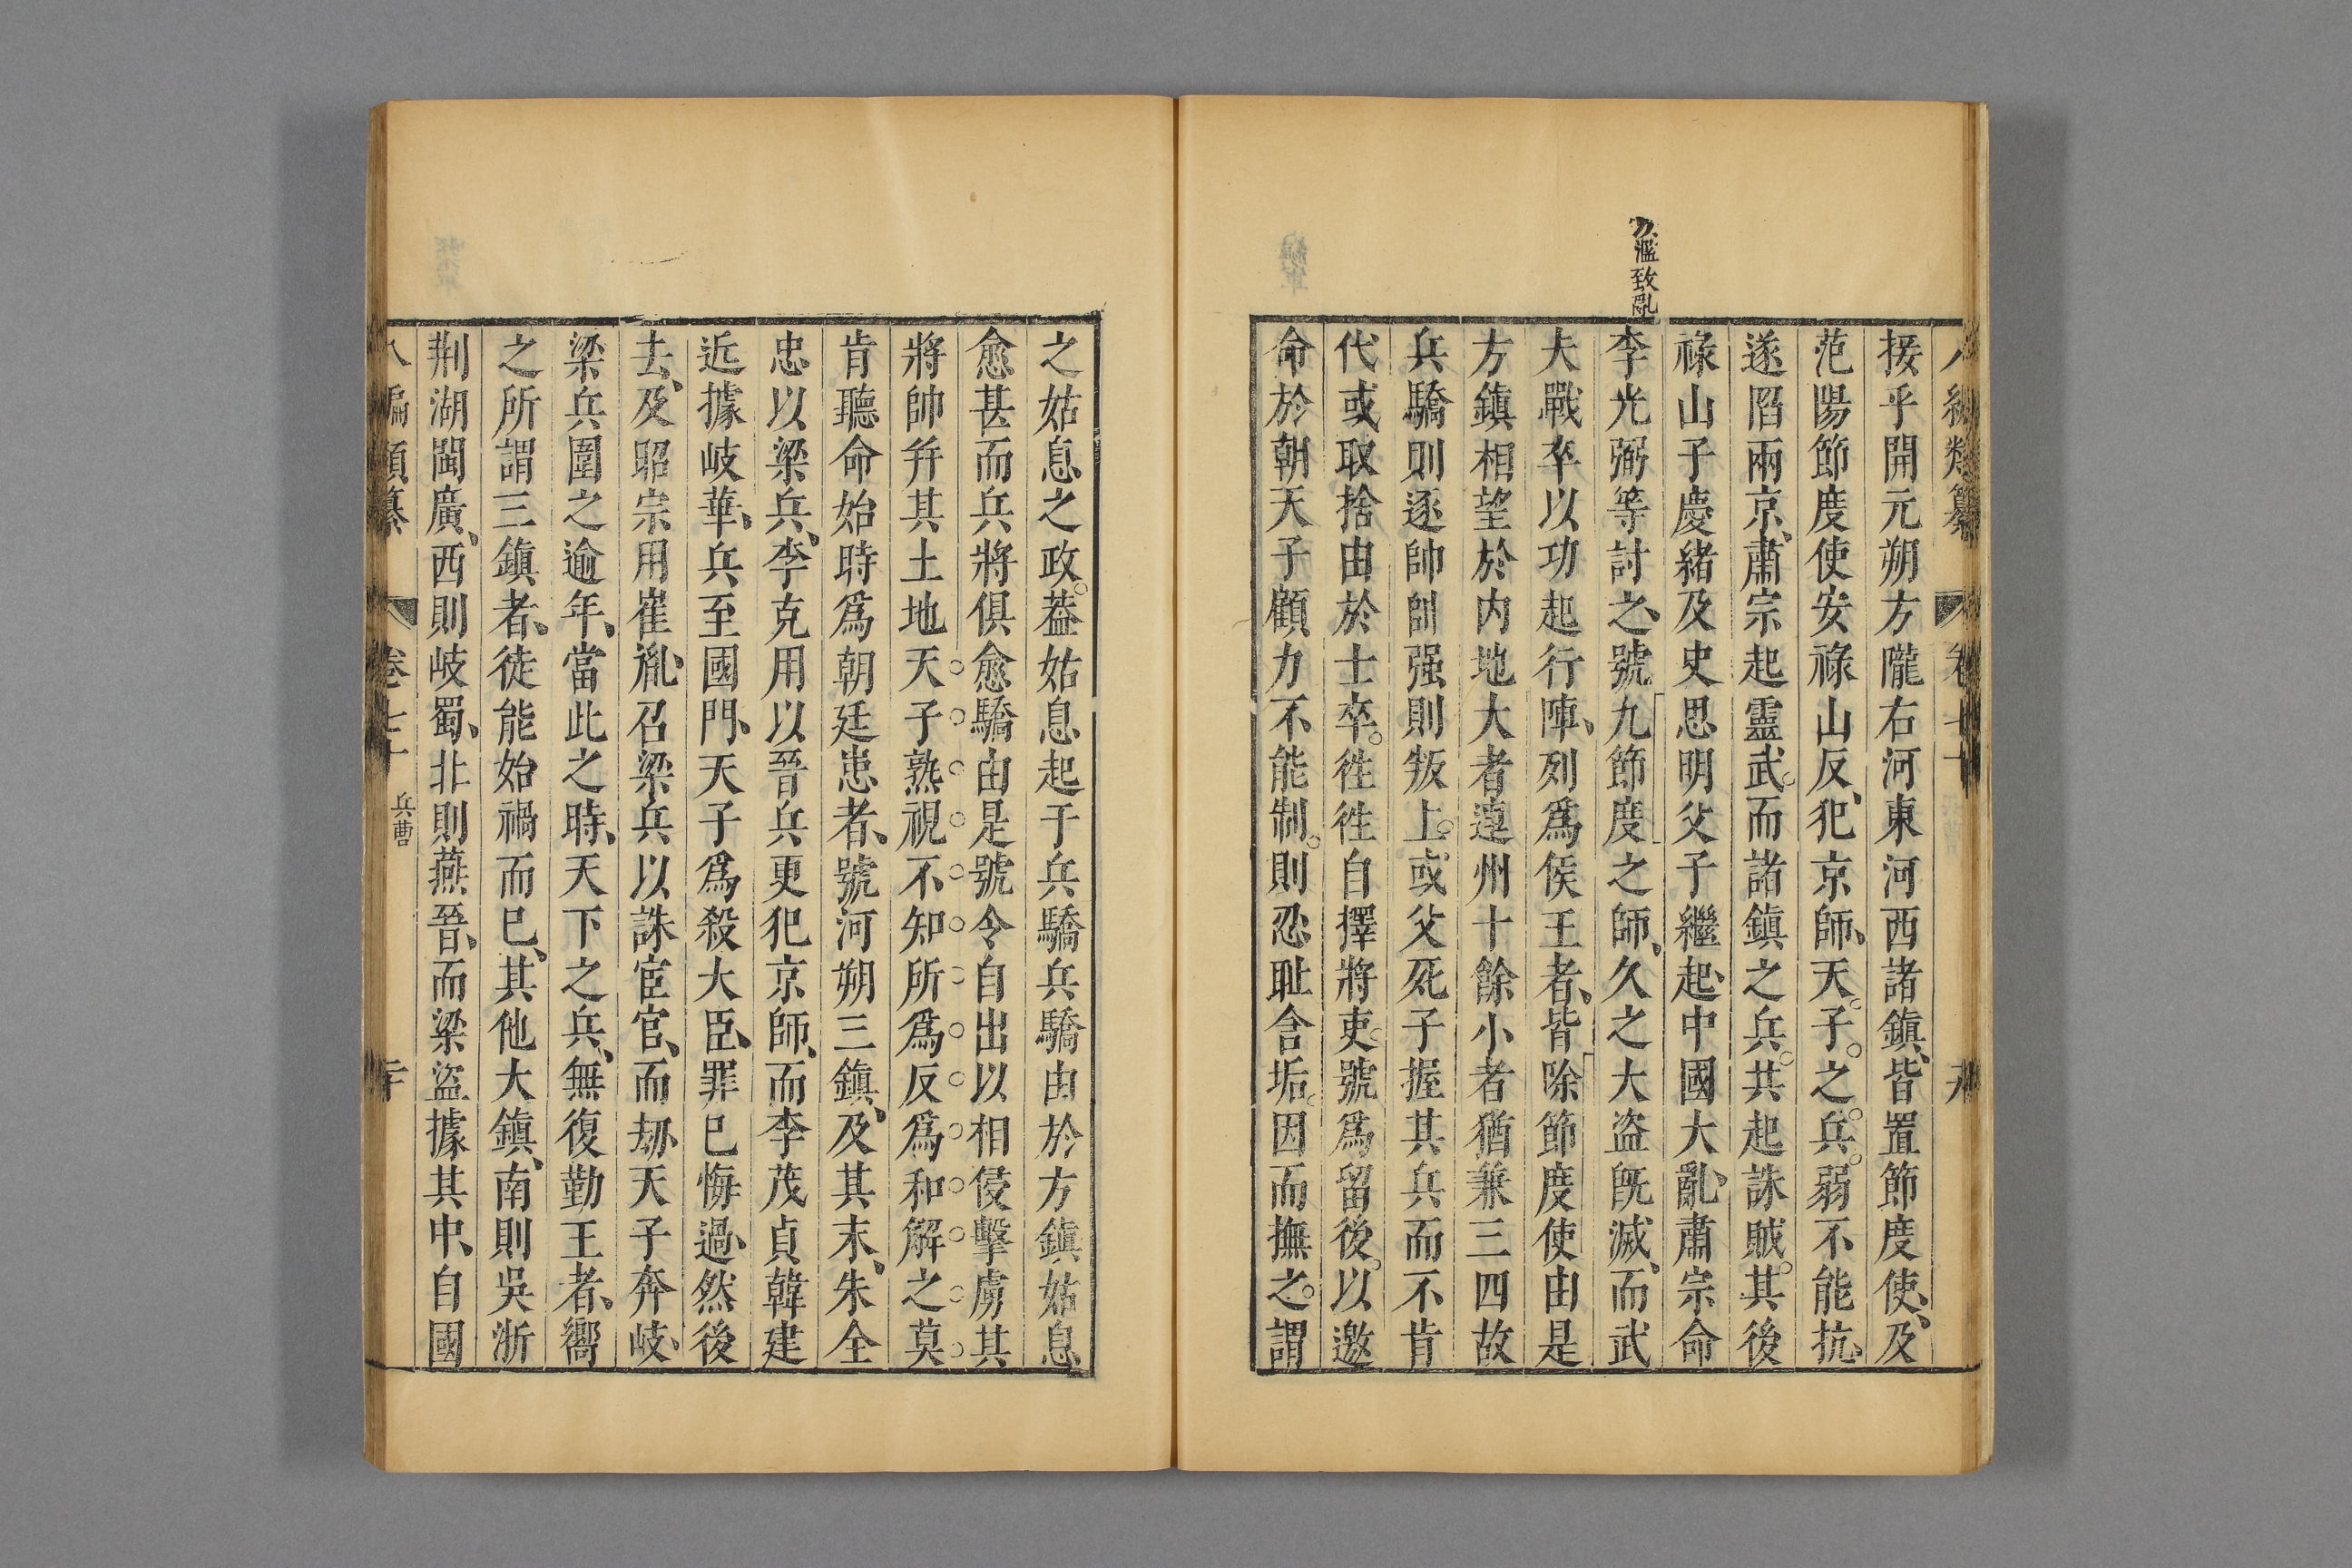 八編類纂 卷七十 九
接乎開元朔方隴右河東河西諸鎭、皆置節度使、及
范陽節度使安祿山反、犯京師、天子之兵弱不能抗、
遂陷兩京、肅宗起靈武。而諸鎭之兵。共起誅賊。其後
祿山子慶緒及史思明父子繼起、中國大亂、肅宗命
李光弼等討之、號九節度之師、久之大盜旣滅、而武
夫戰卒以功起行陣、列爲侯王者、皆除節度使由是
方鎭相望於內地大者連州十餘小者猶兼三四故
兵驕則逐帥帥强則叛上。或父死子握其兵而不肯
代或取捨由於士卒。徃徃自擇將吏。號爲留後。以邀
命於朝天子顧力不能制。則忍耻含垢。因而撫之。謂
濫致亂
之姑息之政。葢姑息起于兵驕兵驕由於方鎭姑息
愈甚而兵將俱愈驕由是號令自出以相侵擊虜其
將帥并其土地天子熟視不知所爲反爲和解之莫
肯聽命始時爲朝廷患者、號河朔三鎭、及其末、朱全
忠以梁兵、李克用以晉兵更犯京師、而李茂貞韓建
近據岐華、兵至國門、天子爲殺大臣、罪已悔過、然後
去、及昭宗用崔胤、召梁兵以誅宦官、而刼天子奔岐、
梁兵圍之逾年、當此之時、天下之兵、無復勤王者、嚮
之所謂三鎭者、徒能始禍而已、其他大鎭、南則吳浙
荆湖閩廣、西則岐蜀、北則燕晉、而梁盜據其中、自國
八編類纂 卷七十 兵曹 二十